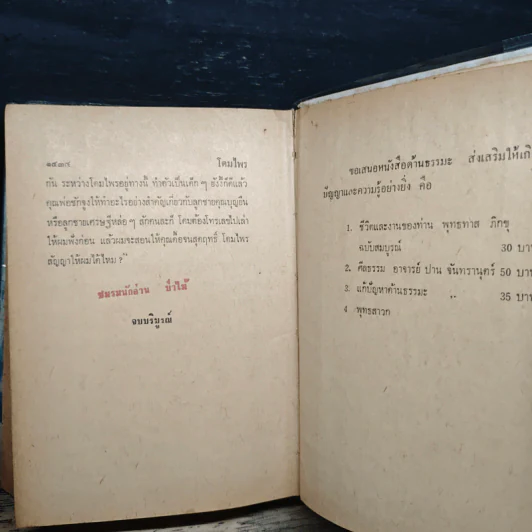 โดมไพร
กัน ระหว่างโดมไพรอยู่ทางนี้ ทำตัวเป็นเด็ก ๆ ยังงี้ก็ดีแล้ว
คุณพ่อชักจูงให้ทำอะไรอย่างสำคัญเกี่ยวกับลูกชายคุณบุญยืน
หรือลูกชายเศรษฐีหล่อ ๆ สักคนละก็ โดมต้องโทรเลขไปเล่า
ให้ผมฟังก่อน แล้วผมจะสอนให้คุณดื้อจนสุดฤทธิ์ โดมไพร
สัญญาให้ผมได้ไหม ?"
ชมรมนักอ่าน
จบบริบูรณ์
ขอเสนอหนังสือด้านธรรมะ ส่งเสริมให้เกิ
ปัญญาและความรู้อย่างยิ่ง คือ
1. ชีวิตและงานของท่าน พุทธทาส ภิกขุ
ฉบับสมบูรณ์ 30 บา
2. ศีลธรรม อาจารย์ ปาน จันทรานุตร์ 50 บาท
3. แก้ปัญหาด้านธรรมะ ,, 35 บา
4 พุทธสาวก